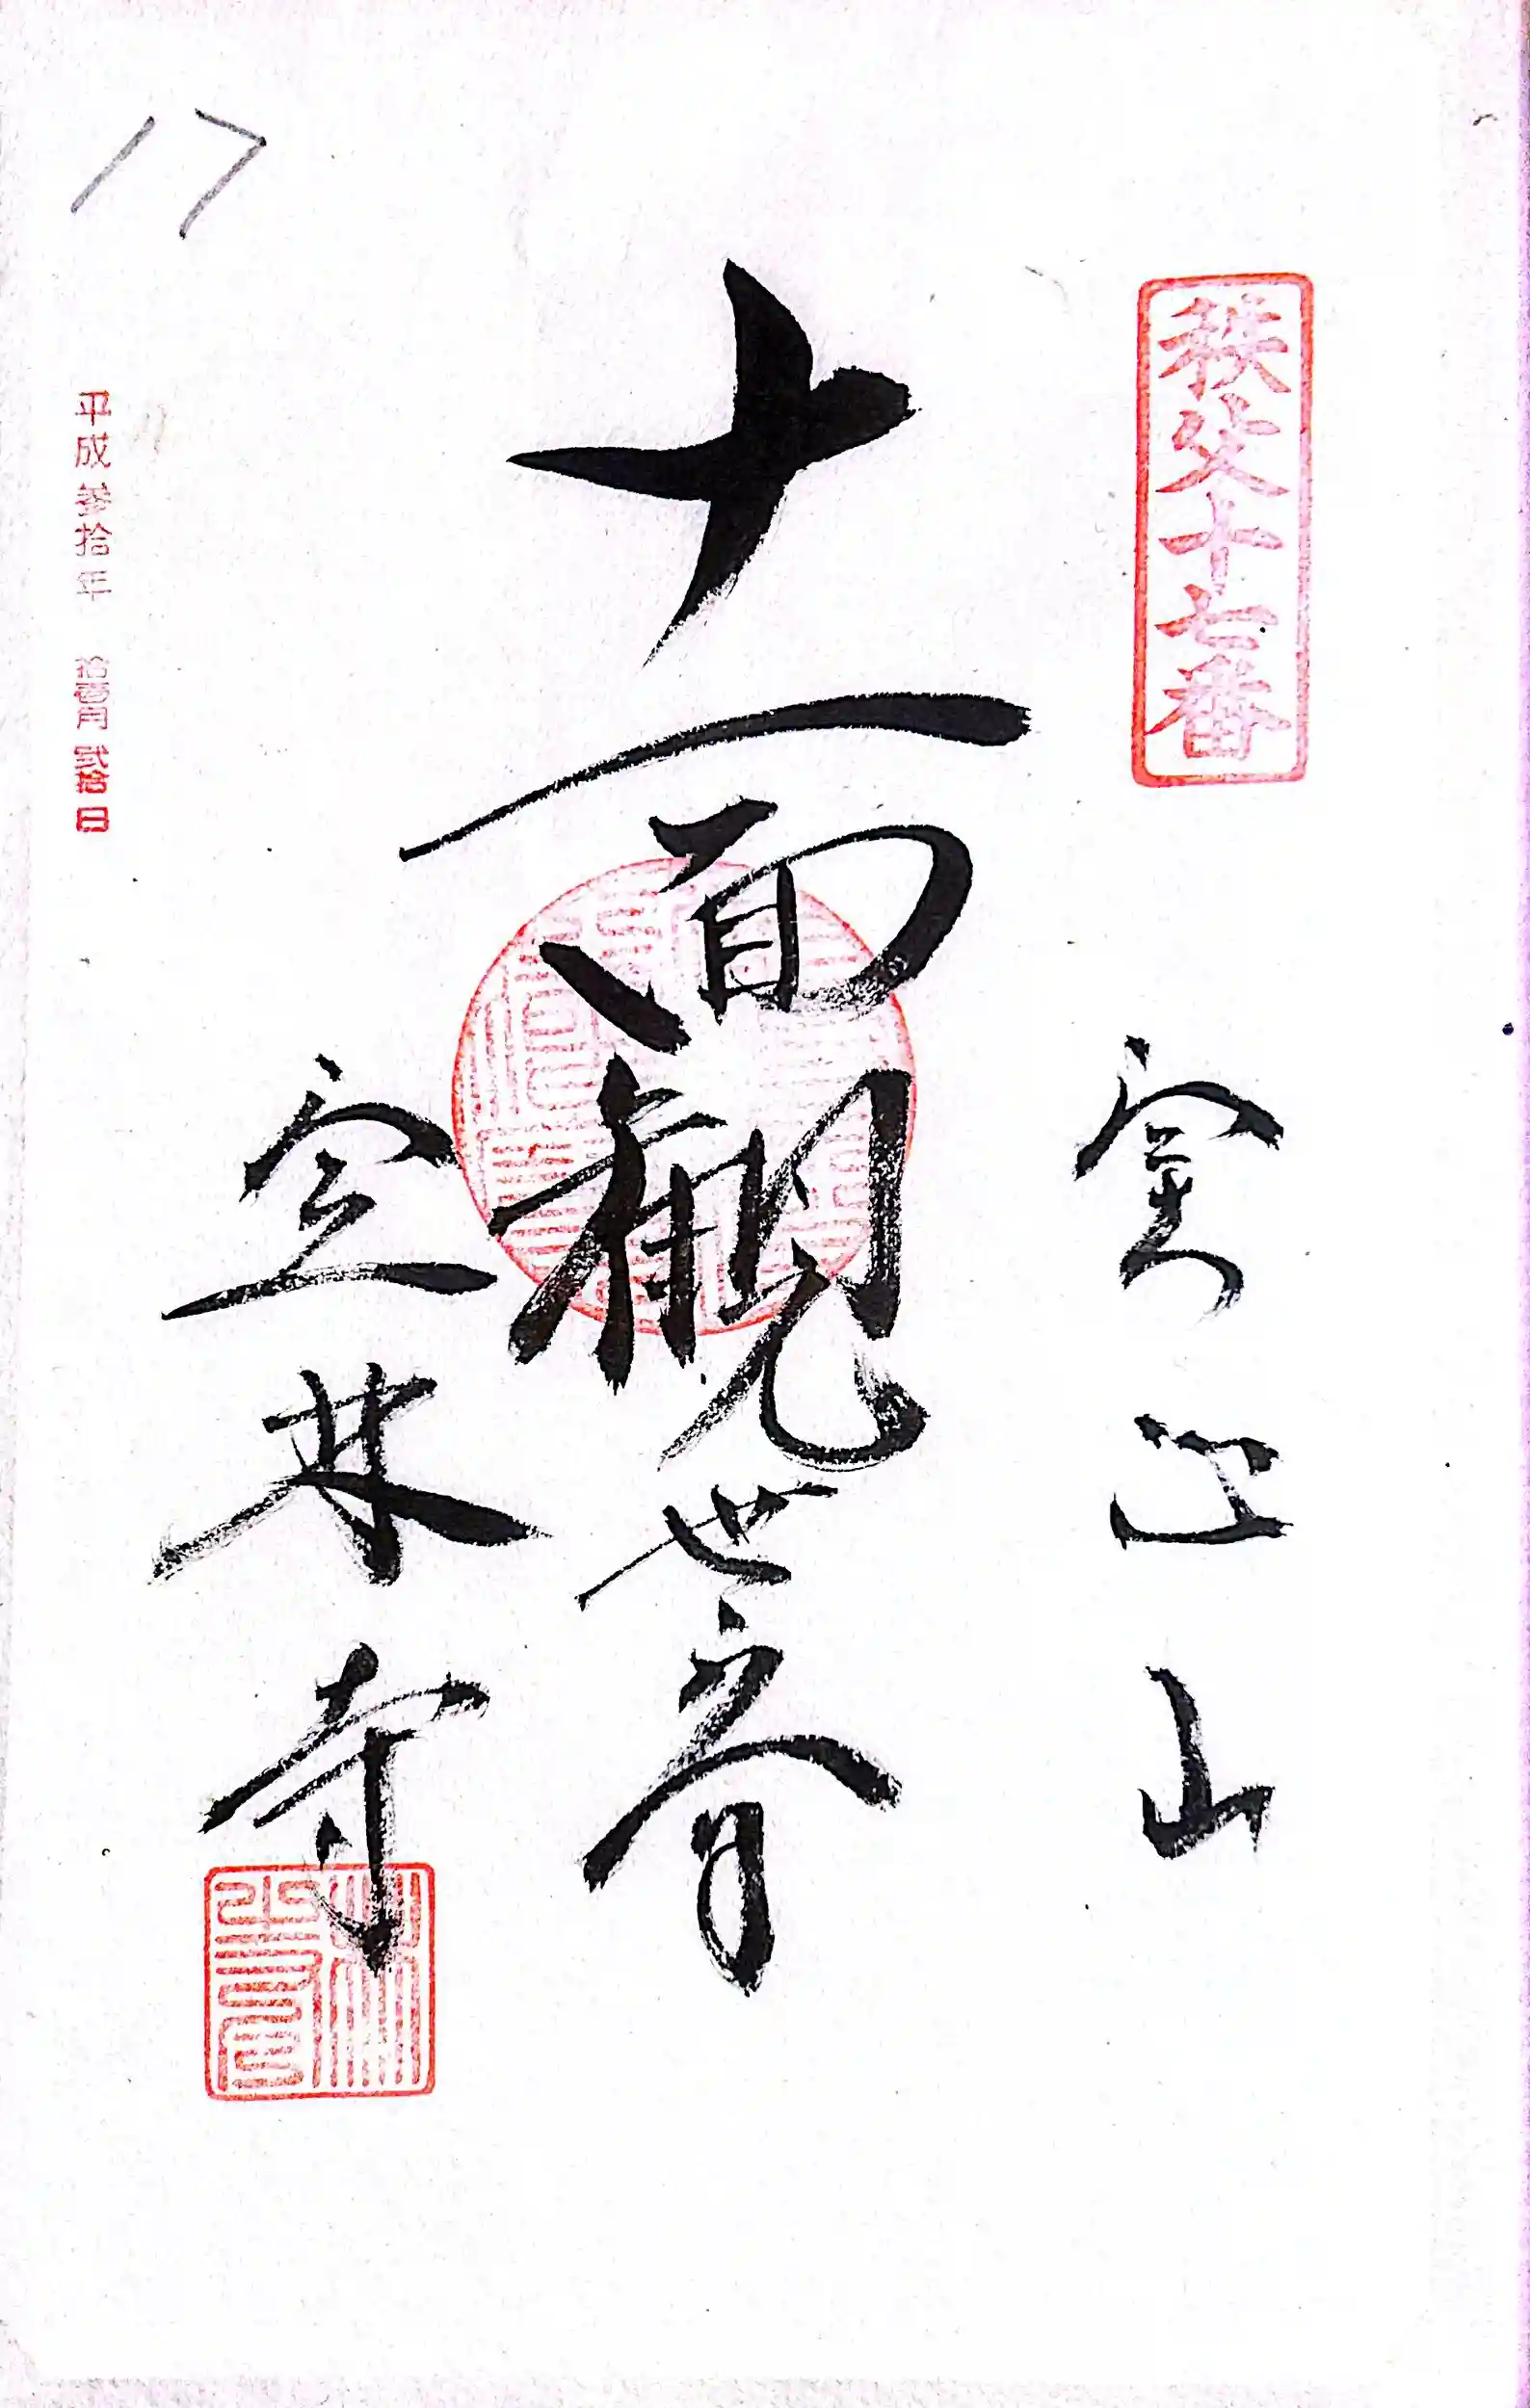 秩父十七番
実正山
十一面観世音
定林寺
平成参拾年 拾壹月 貳拾日
17